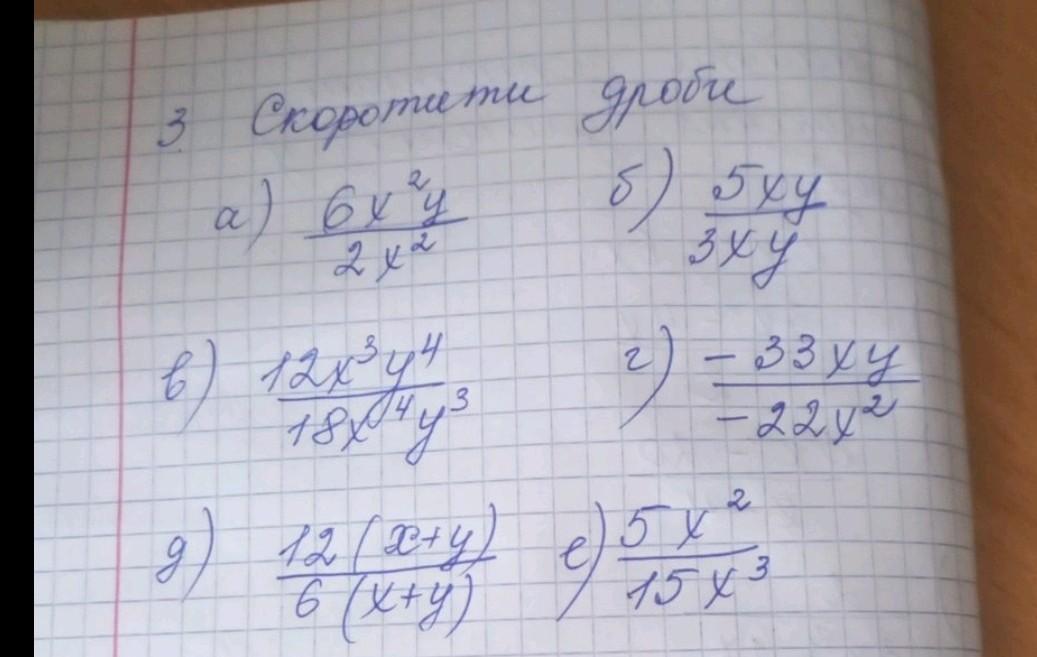 3 Скоротити дроби
а) 6x²y / 2x² б) 5xy / 3xy
в) 12x³y⁴ / 18x⁴y³ г) -33xy / -22x²
д) 12(x+y) / 6(x+y) е) 5x² / 15x³